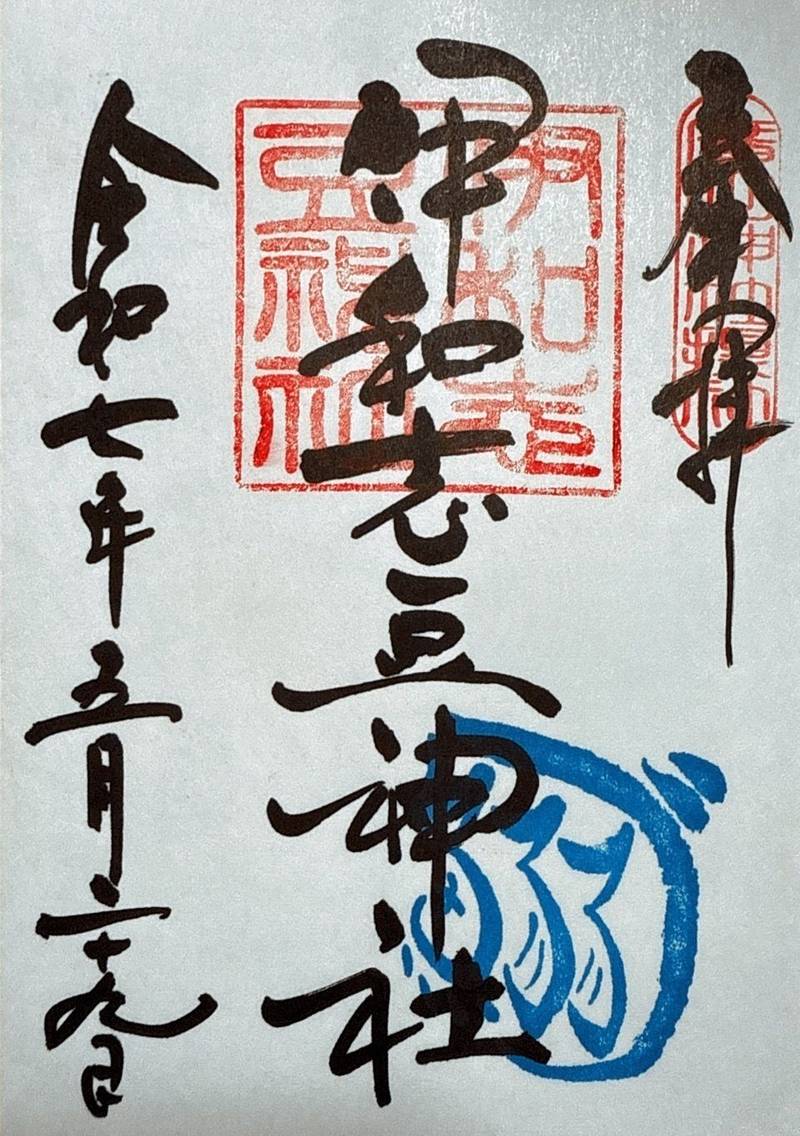 奉拝
廣田神社摂社
伊和志豆神社
伊和志
豆神社
令和七年五月二十九日